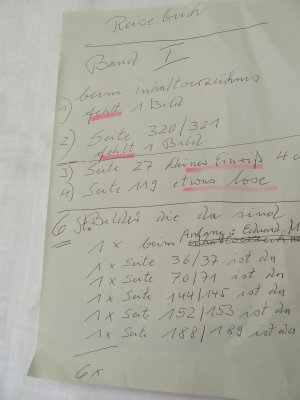 Reisebuch
Band I
1) beim Inhaltsverzeichnis
fehlt 1 Bild
2) Seite 320/321
fehlt 1 Bild
3) Seite 27 kleiner Einriß 4 c
4) Seite 119 etwas lose
6 St. Bilder die da sind
1 x beim Anfang: Eduard
1 x Seite 36/37 ist da
1 x Seite 70/71 ist da
1 x Seite 144/145 ist da
1 x Seite 152/153 ist da
1 x Seite 188/189 ist da
6x